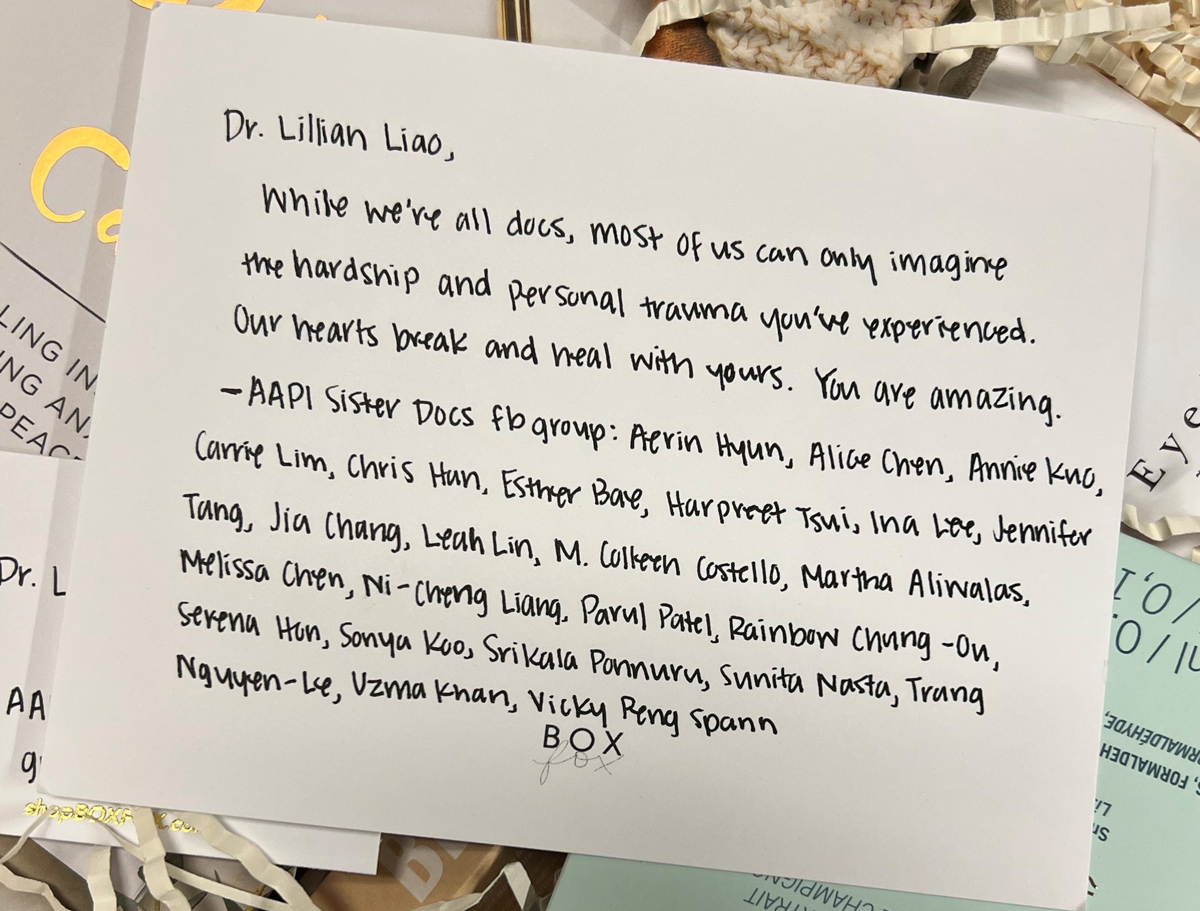 Dr. Lillian Liao,
While we're all docs, most of us can only imagine
the hardship and personal trauma you've experienced.
Our hearts break and heal with yours. You are amazing.
-AAPI Sister Docs fb group: Aerin Hyun, Alice Chen, Annie Kuo,
Carrie Lim, Chris Han, Esther Bae, Harpreet Tsui, Ina Lee, Jennifer
Tang, Jia Chang, Leah Lin, M. Colleen Costello, Martha Aliwalas,
Melissa Chen, Ni-Cheng Liang, Parul Patel, Rainbow Chung-Ou,
Serena Hon, Sonya Koo, Srikala Ponnuru, Sunita Nasta, Trang
Nguyen-Le, Uzma Khan, Vicky Peng Spann
BOX
fox
LING IN
NG AN
PEAC
Dr. L
AA
g
shopBOXFOX.co
Eye
FORMALDEH
CHAMPIGNO